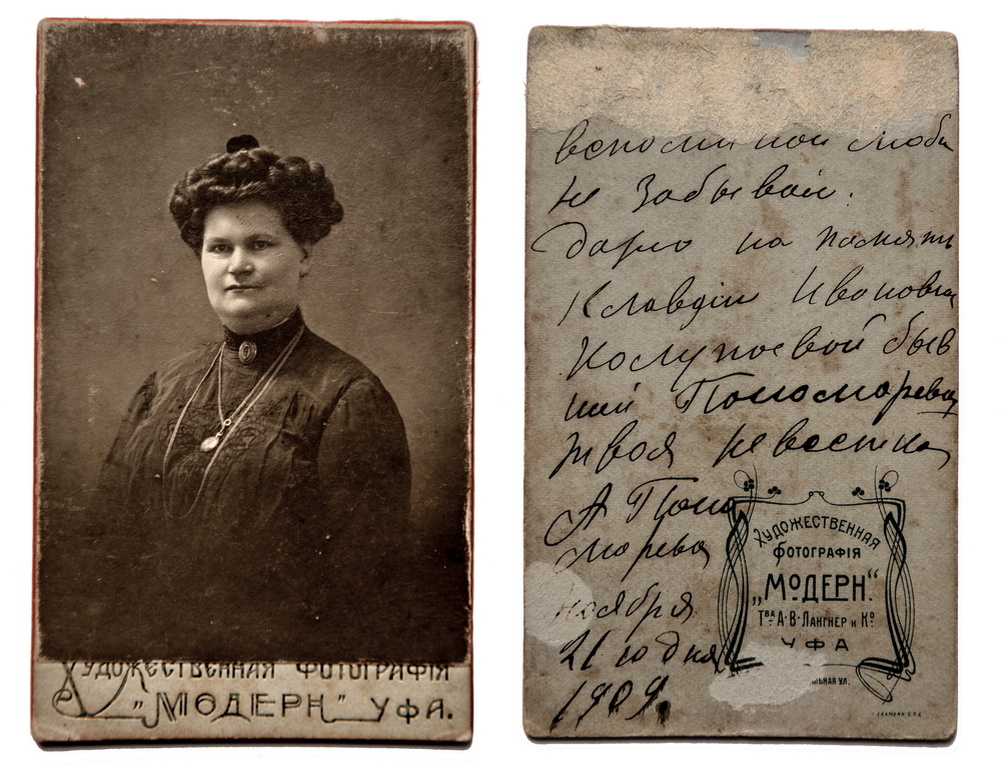 ХУДОЖЕСТВЕННАЯ ФОТОГРАФІЯ
„МОДЕРН" УФА.
вспоминай люби
не Забывай.
дарю на память
Клавдіи Ивановны
быв
шей Пономаревы
твоя невестка
А Поно
морева
ноября
21 го дня
1909.
ХУДОЖЕСТВЕННАЯ
ФОТОГРАФІЯ
„МОДЕРН."
Тва А·В·ЛАНГНЕР и Ко
УФА
ЛЬНАЯ УЛ.